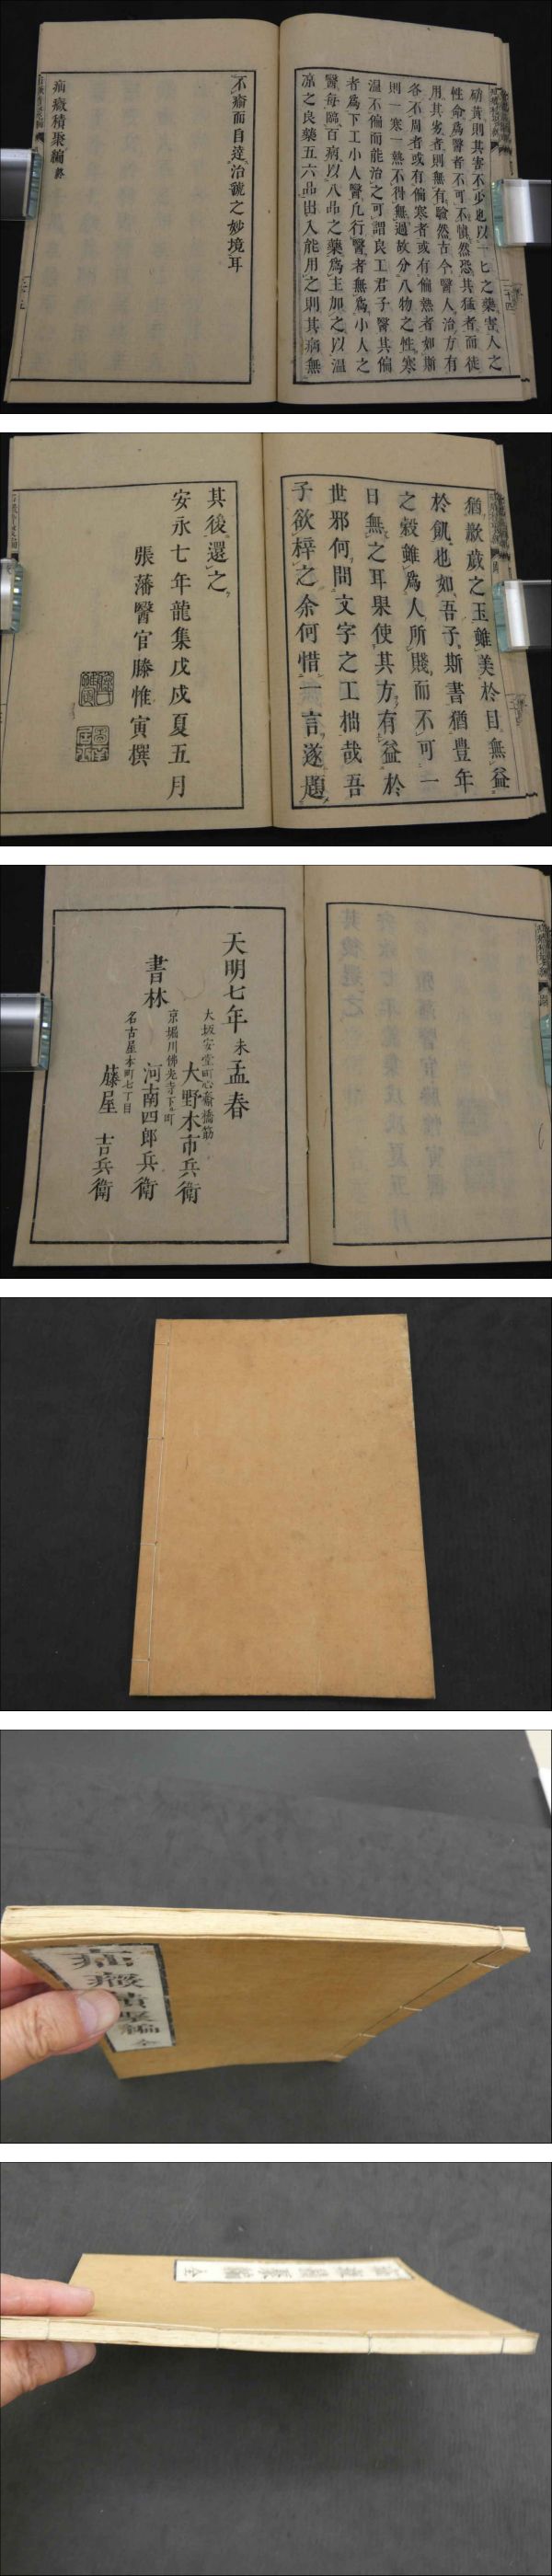 硝黃則其害不少也以一匕之藥害人之
性命爲醫者不可不愼然恐其猛者而徒
用其劣者則無有驗然古今醫人治方有
各不周者或有偏寒者或有偏熱者如斯
則一寒一熱不得無過故分八物之性寒
溫不偏而能治之可謂良工君子醫其偏
者爲下工小人醫凡行醫者無爲小人之
醫每臨百病以八品之藥爲主加之以溫
涼之良藥五六品出入能用之則其病無
不瘉而自達治號之妙境耳
疝癥積聚編終
猶歉歲之玉雖美於目無益
於飢也如吾子斯書猶豊年
之穀雖爲人所賤而不可一
日無之耳果使其方有益於
世邪何問文字之工拙哉吾
子欲梓之余何惜一言遂題
其後還之
安永七年龍集戊戌夏五月
張藩醫官滕惟寅撰
天明七年未孟春
書林
大坂安堂町心齋橋筋
大野木市兵衛
京堀川佛光寺下ル町
河南四郎兵衛
名古屋本町七丁目
藤屋 吉兵衛
疝癥積聚編 全